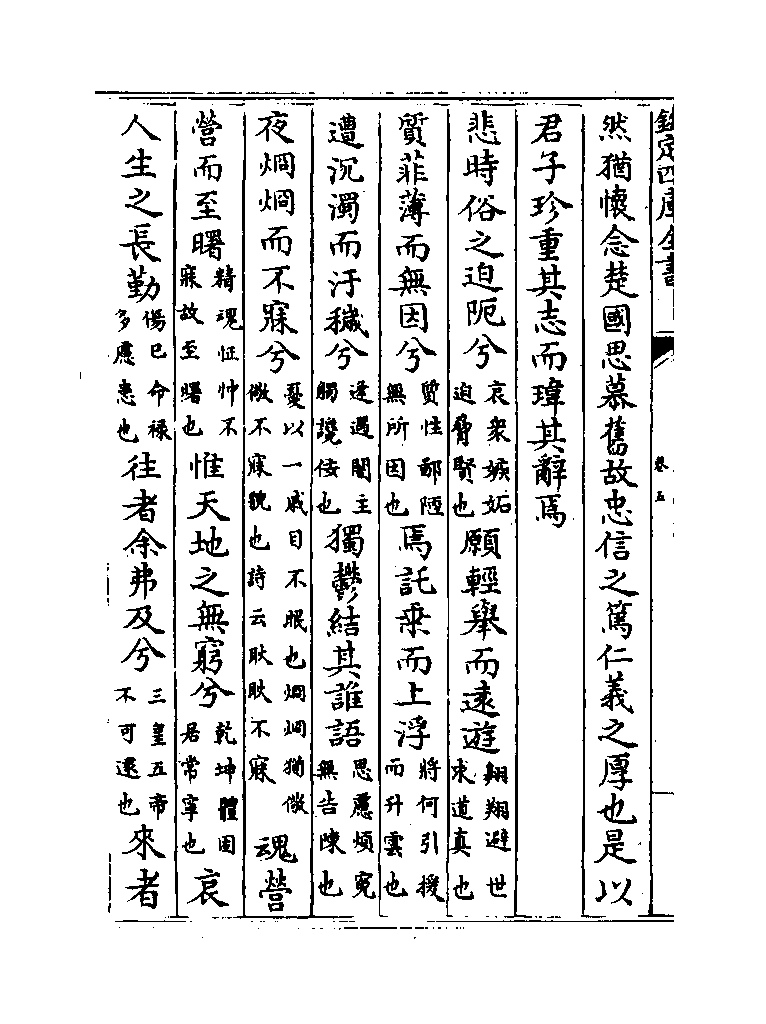 欽定四庫全書
卷五
然猶懷念楚國思慕舊故忠信之篤仁義之厚也是以
君子珍重其志而瑋其辭焉
悲時俗之迫阨兮哀衆嫉妬迫脅賢也願輕舉而遠遊翺翔避世求道真也
質菲薄而無因兮質性鄙陋無所因也焉託乗而上浮將何引援而升雲也
遭沉濁而汙穢兮逢遇闇主觸讒佞也獨鬱結其誰語思慮煩寃無告陳也
夜烱烱而不寐兮憂以一戚目不眠也烱烱猶儆儆不寐貌也詩云耿耿不寐魂營
營而至曙精魂怔忡不寐故至曙也惟天地之無窮兮乾坤體固居常寧也哀
人生之長勤傷己命祿多慮患也往者余弗及兮三皇五帝不可逮也來者